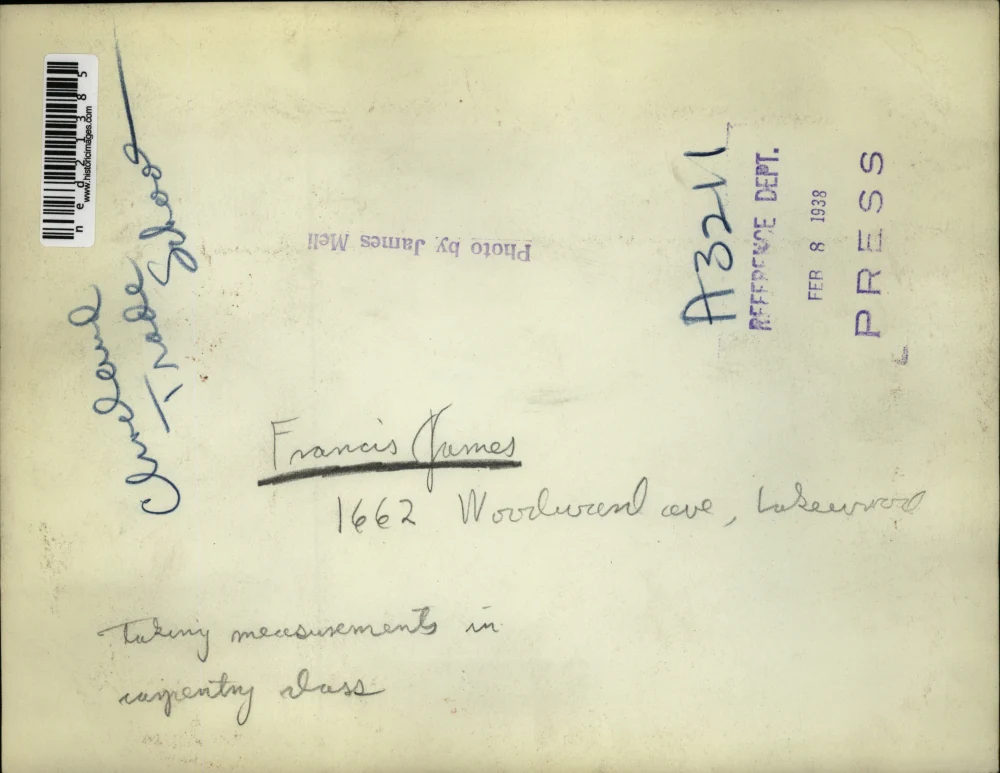 ned21385
www.historicimages.com
Cleveland
Trade School
Photo by James Meli
A3211
REFERENCE DEPT.
FEB 8 1938
PRESS
Francis James
1662 Woodward ave, Lakewood
Taking measurements in
carpentry class